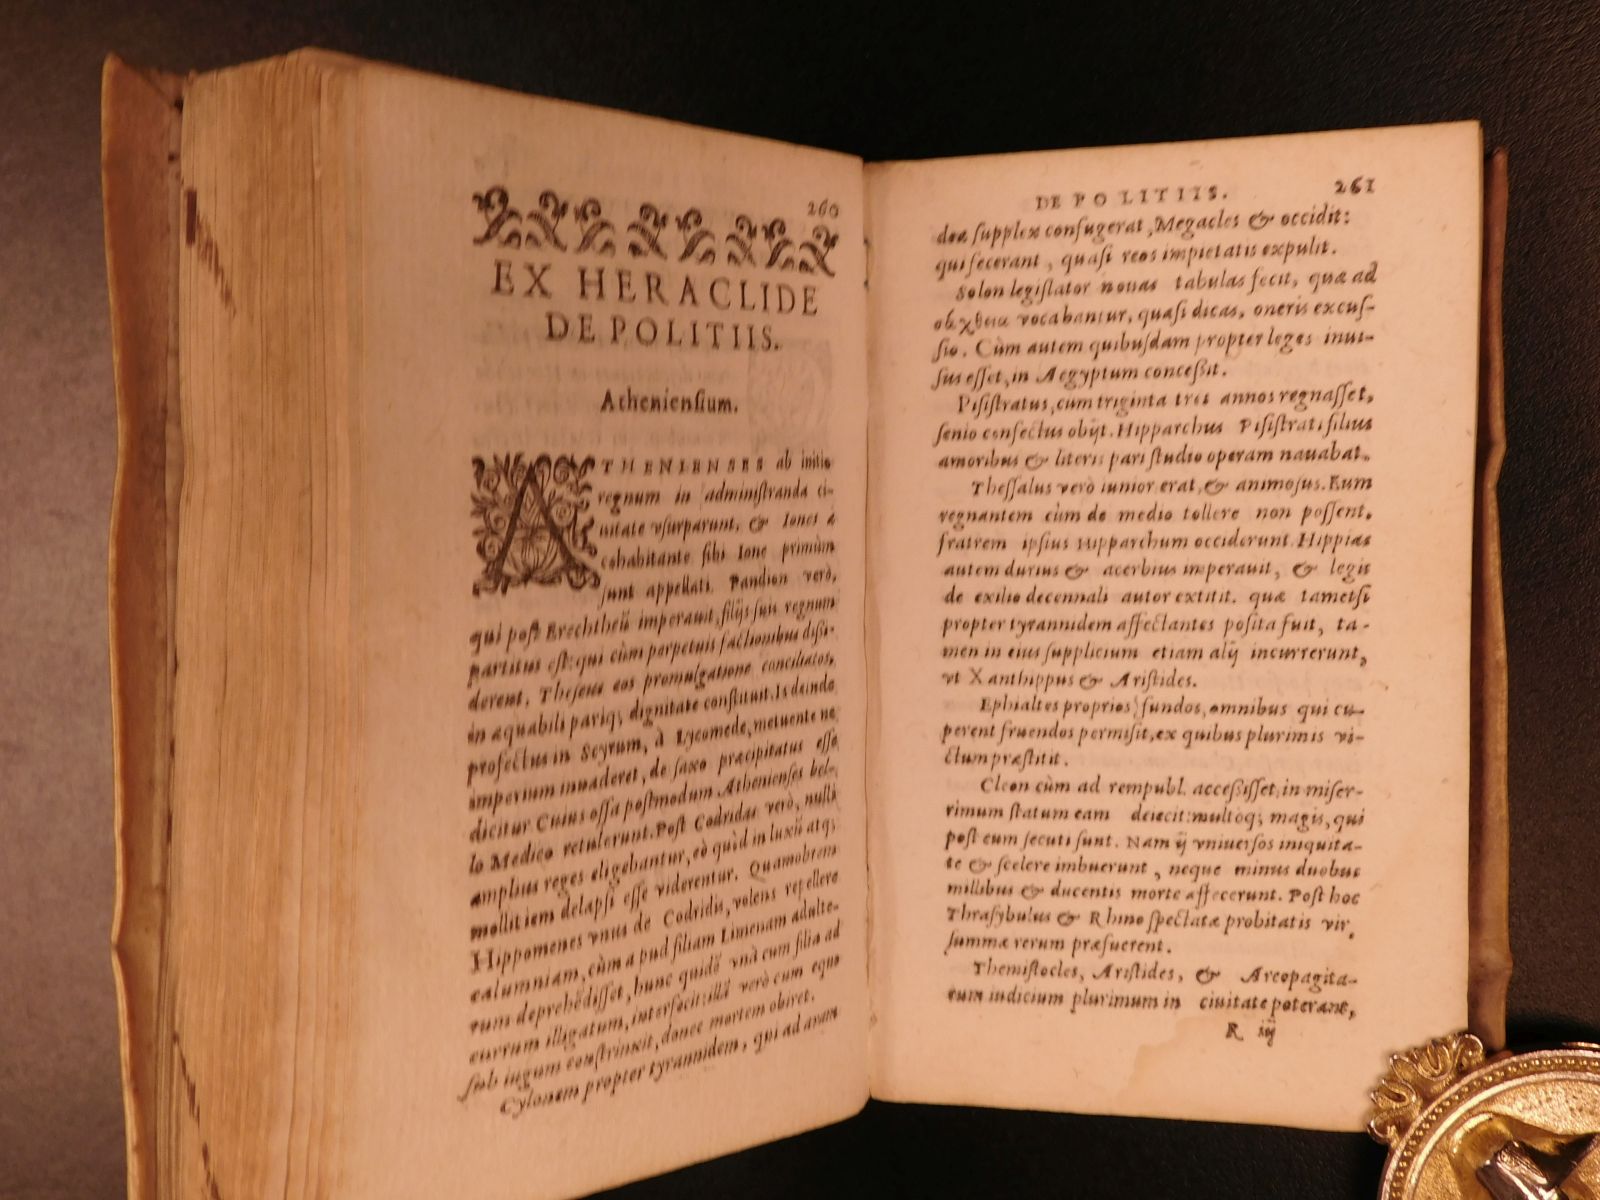 260
EX HERACLIDE
DE POLITIIS.
Atheniensium.
ATHENIENSES ab initio
regnum in administranda ci-
uitate vsurparunt, & Iones à
cohabitante sibi Ione primùm
sunt appellati. Pandion verò,
qui post Erechtheū imperauit, filijs suis regnum
partitus est: qui cùm perpetuis factionibus dissi-
derent, Theseus eos promulgatione conciliatos,
in æquabili pariq; dignitate constituit. Is deinde
profectus in Scyrum, à Lycomede, metuente ne
imperium inuaderet, de saxo præcipitatus esse
dicitur Cuius ossa postmodum Athenienses bel-
lo Medico retulerunt. Post Codridas verò, nulli
amplius reges eligebantur, eò quòd in luxū atq;
mollitiem delapsi esse viderentur. Quamobrem
Hippomenes vnus de Codridis, volens repellere
calumniam, cùm apud filiam Limenam adulte-
rum deprehēdisset, hunc quidē vnà cum filia ad
currum illigatum, interfecit: illā verò cum equo
sub iugum constrinxit, donec mortem obiret.
Cylonem propter tyrannidem, qui ad aram
DE POLITIIS. 261
deæ supplex confugerat, Megacles & occidit:
qui fecerant, quasi reos impietatis expulit.
Solon legislator nouas tabulas fecit, quæ ad
vocabantur, quasi dicas, oneris excus-
sio. Cùm autem quibusdam propter leges inui-
sus esset, in Aegyptum concessit.
Pisistratus, cum triginta tres annos regnasset,
senio confectus obijt. Hipparchus Pisistrati filius
amoribus & literis pari studio operam nauabat.
Thessalus verò iunior erat, & animosus. Eum
regnantem cùm de medio tollere non possent,
fratrem ipsius Hipparchum occiderunt. Hippias
autem durius & acerbius imperauit, & legis
de exilio decennali autor extitit. quæ tametsi
propter tyrannidem affectantes posita fuit, ta-
men in eius supplicium etiam alij incurrerunt,
vt Xanthippus & Aristides.
Ephialtes proprios fundos, omnibus qui cu-
perent fruendos permisit, ex quibus plurimis vi-
ctum præstitit.
Cleon cùm ad rempubl. accessisset, in miser-
rimum statum eam deiecit: multoq; magis, qui
post eum secuti sunt. Nam ij vniuersos iniquita-
te & scelere imbuerunt, neque minus duobus
millibus & ducentis morte affecerunt. Post hoc
Thrasybulus & Rhino spectatæ probitatis vir,
summæ rerum præfuerent.
Themistocles, Aristides, & Areopagita-
rum iudicium plurimum in ciuitate poterant,
R iij